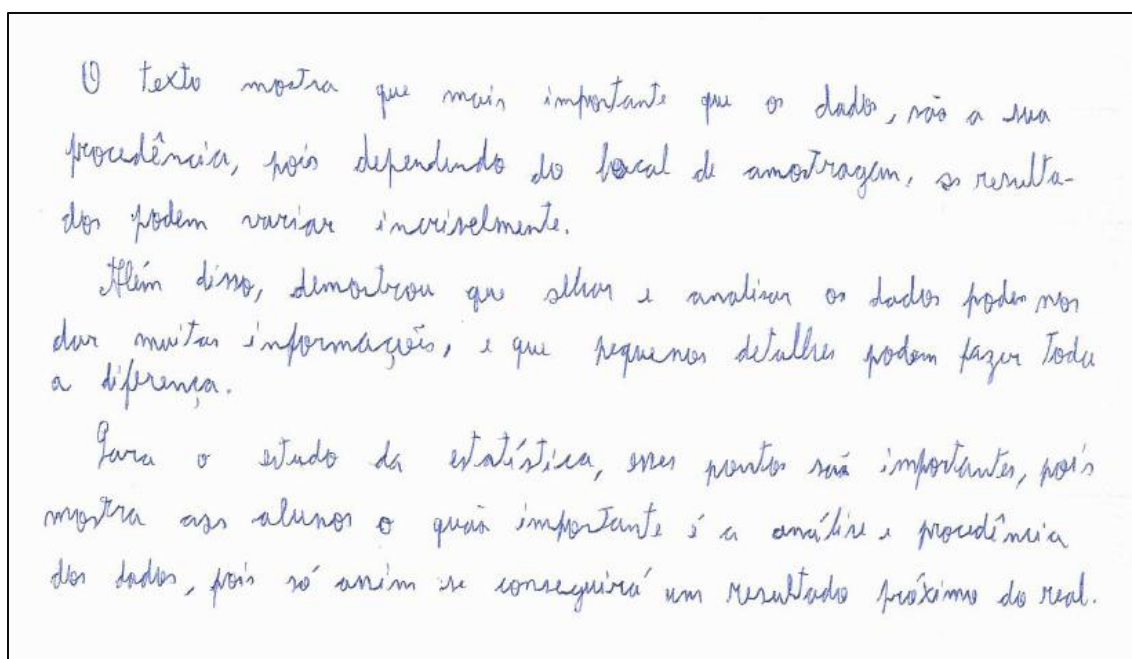 O texto mostra que mais importante que os dados, são a sua
procedência, pois dependendo do local de amostragem, os resulta-
dos podem variar incrivelmente.
Além disso, demostrou que olhar e analisar os dados podem nos
dar muitas informações, e que pequenos detalhes podem fazer toda
a diferença.
Para o estudo da estatística, esses pontos são importantes, pois
mostra aos alunos o quão importante é a análise e procedência
dos dados, pois só assim se conseguirá um resultado próximo do real.